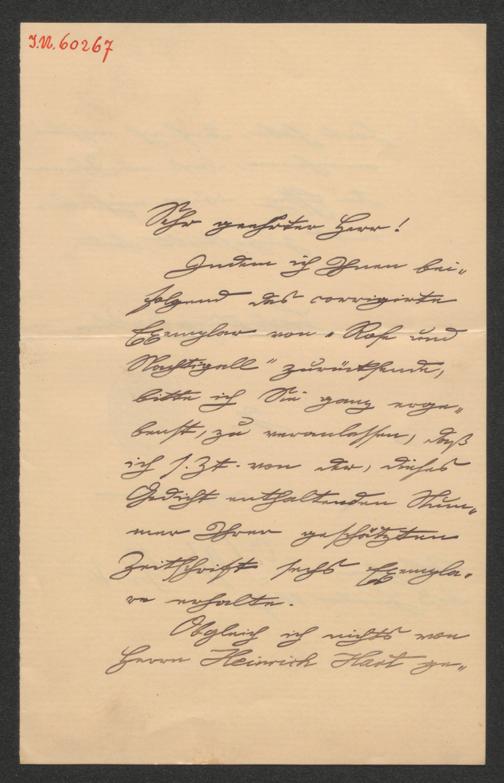 I.N. 60267
Sehr geehrter Herr!
Indem ich Ihnen bei=
folgend das corrigirte
Exemplar von „Rose und
Nachtigall" zurücksende,
bitte ich Sie ganz erge=
benst, zu veranlassen, daß
ich s. Zt. von der, dieses
Gedicht enthaltenden Num=
mer Ihrer geschätzten
Zeitschrift sechs Exempla=
re erhalte.
Obgleich ich nichts von
Herrn Heinrich Hart ge=